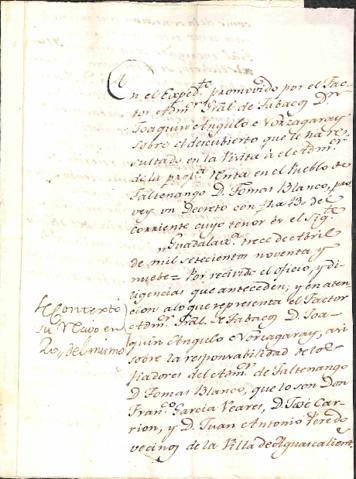 En el Exped.te promovido por el Fac-
tor Adm.r Gral. de Tabacos D.n
Joaquin Angulo e Vorzagaray
sobre el descubierto que le ha re-
sultado en la Visita á el Adm.r
de la prop.a Renta en el Pueblo de
Jaltenango D. Tomas Blanco, pro-
vey un Decreto con fha 13 del
corriente cuyo tenor es el Sig.te
Guadalax.a trece de Abril
de mil setecientos noventa y
nuebe= Por recivido el oficio, y di-
ligencias que anteceden; y en aten-
cion a lo que representa el Factor
Adm.r Gral. de Tabacos D. Joa-
quin Angulo e Vorzagaray, asi
sobre la responsabilidad de los
fiadores del Adm.r de Jaltenango
D. Tomas Blanco, que lo son Don
Fran.co Garcia Veares, D. José Car-
rion, y D. Juan Antonio Peredo
vecinos de la Villa de Aguascalient.s
Se Contextó
su Recivo en
20, del mismo